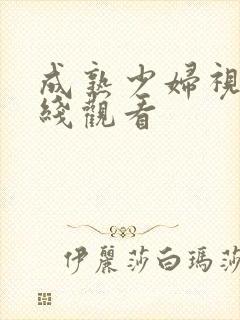 成熟少婦視
綫觀看
伊麗莎白瑪莎